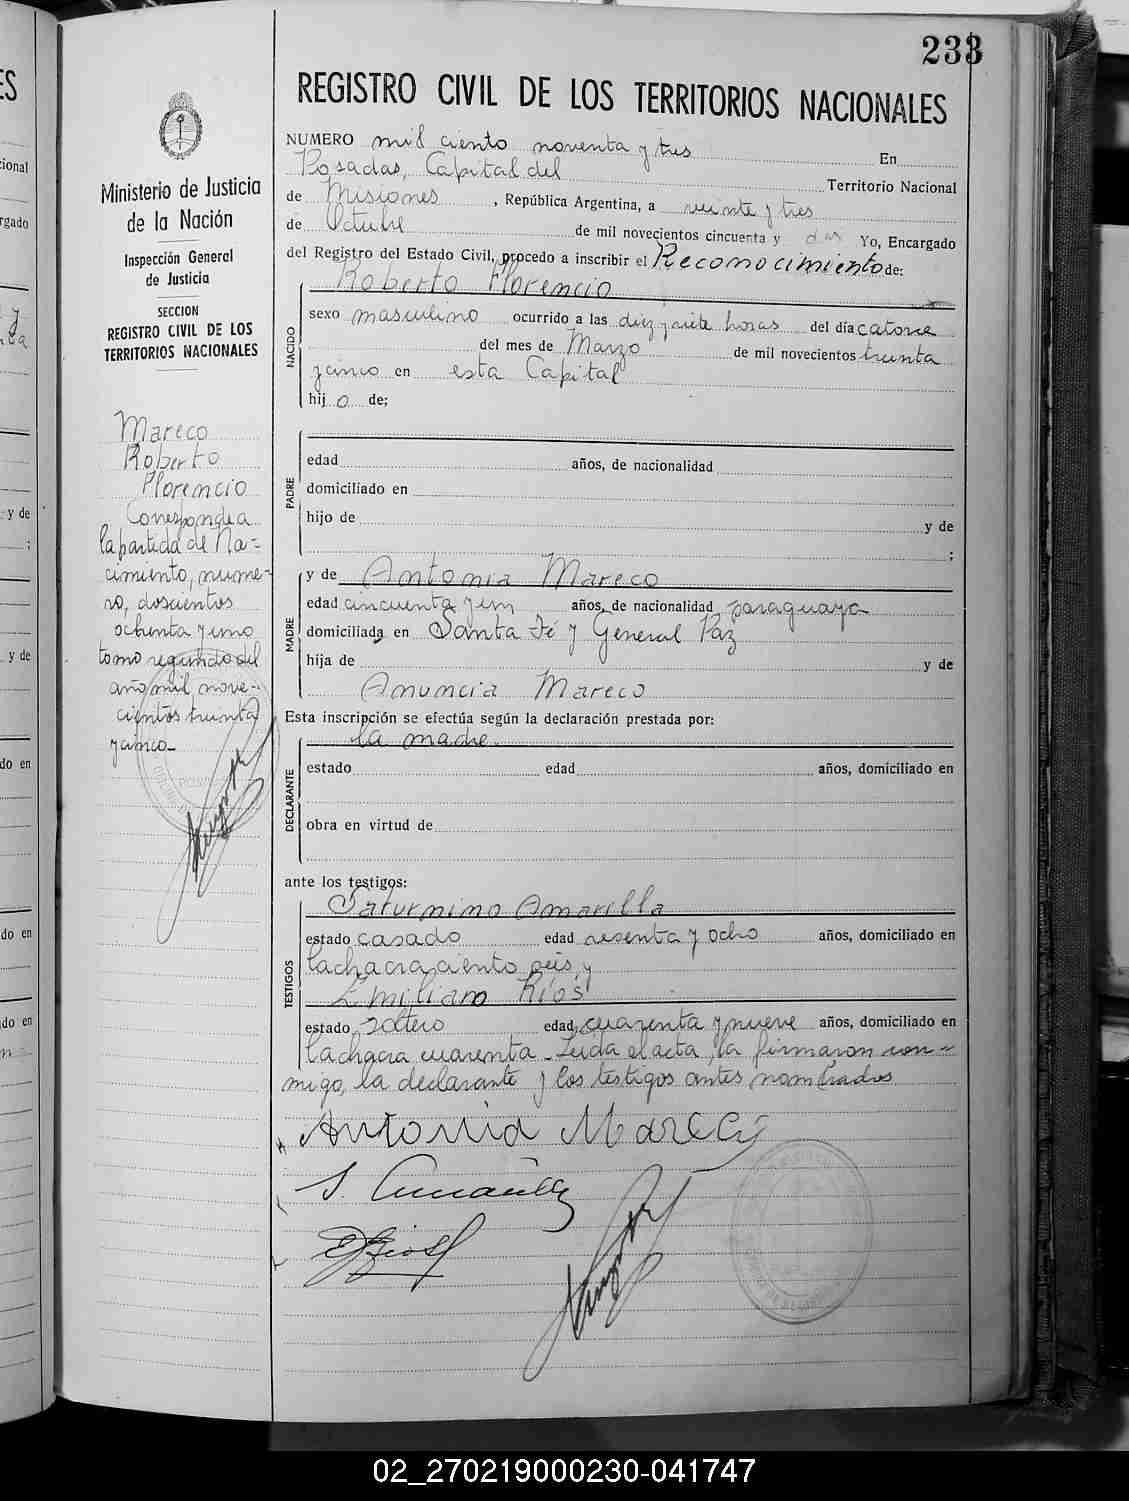 233
REGISTRO CIVIL DE LOS TERRITORIOS NACIONALES
Ministerio de Justicia
de la Nación
Inspección General
de Justicia
SECCION
REGISTRO CIVIL DE LOS
TERRITORIOS NACIONALES
Mareco
Roberto
Florencio
Corresponde a
la partida de Na-
cimiento, nume-
ro, doscientos
ochenta y uno
tomo segundo del
año mil nove-
cientos treinta
y cinco
NUMERO mil ciento noventa y tres En
Posadas, Capital del Territorio Nacional
de Misiones, República Argentina, a veinte y tres
de Octubre de mil novecientos cincuenta y dos Yo, Encargado
del Registro del Estado Civil, procedo a inscribir el Reconocimiento de:
Roberto Florencio
NACIDO
sexo masculino ocurrido a las diez y siete horas del día catorce
del mes de Marzo de mil novecientos treinta
y cinco en esta Capital
hijo de;
PADRE
edad años, de nacionalidad
domiciliado en
hijo de y de
;
MADRE
y de Antonia Mareco
edad cincuenta y un años, de nacionalidad paraguaya
domiciliada en Santa Fé y General Paz
hija de y de
Anuncia Mareco
Esta inscripción se efectúa según la declaración prestada por:
la madre.
DECLARANTE
estado edad años, domiciliado en
obra en virtud de
ante los testigos:
TESTIGOS
Saturnino Amarilla
estado casado edad sesenta y ocho años, domiciliado en
la chacra ciento seis, y
Emiliano Ríos
estado soltero edad cuarenta y nueve años, domiciliado en
la chacra cuarenta - Leída el acta, la firmaron con-
migo, la declarante y los testigos antes nombrados
Antonia Mareco
S. Amarilla
E Rios
02_270219000230-041747